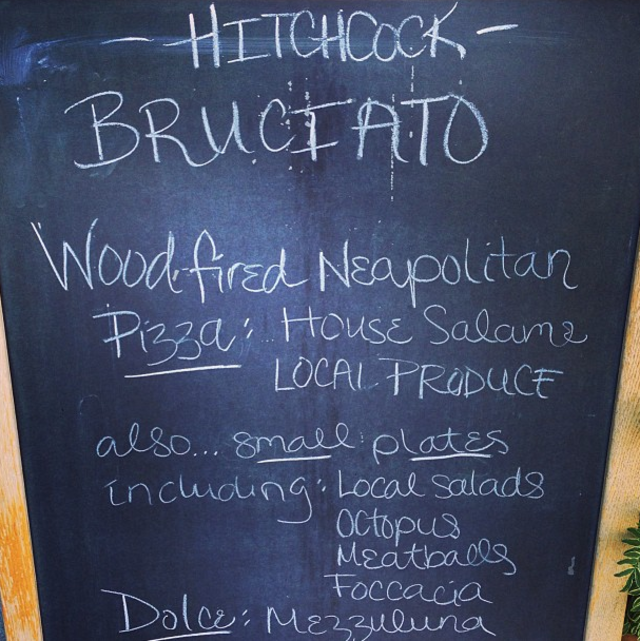 - HITCHCOCK -
BRUCIATO
Wood-fired Neapolitan
Pizza: House Salame
LOCAL PRODUCE
also... small plates
including: Local Salads
Octopus
Meatballs
Foccacia
Dolce: Mezzuluna